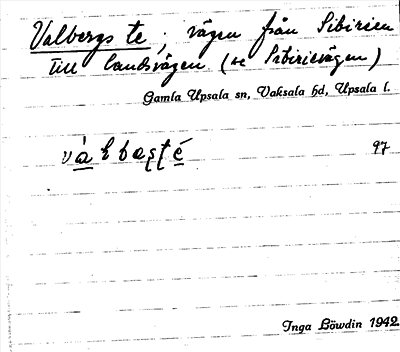 Valbergs te, vägen från Sibirien
till landsvägen (se Sibirievägen)
Gamla Upsala sn, Vaksala hd, Upsala l.
97
Inga Löwdin 1942.